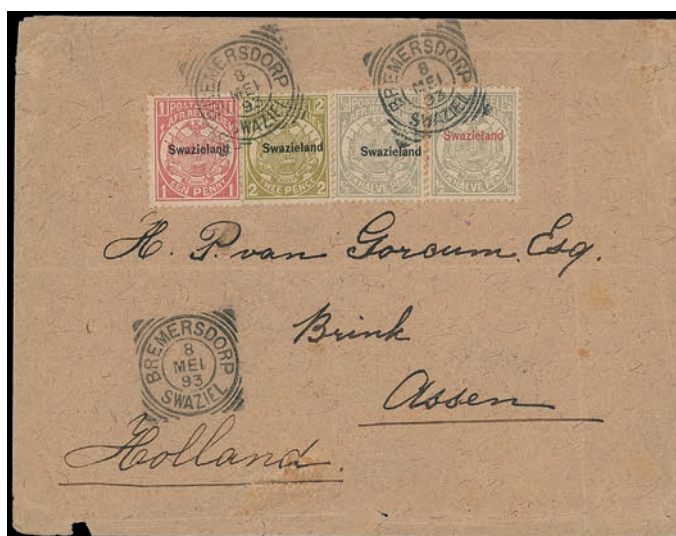 BREMERSDORP
8
MEI
93
SWAZIEL
BREMERSDORP
8
MEI
93
SWAZIEL
1 POSTZEGEL 1
Swazieland
EEN PENNY
1 1
2 2
Swazieland
TWEE PENCE
2 2
Swazieland
HALVE PENNY
Swazieland
HALVE PENNY
H. P. van Gorcum. Esq.
Brink
Assen
BREMERSDORP
8
MEI
93
SWAZIEL
Holland.